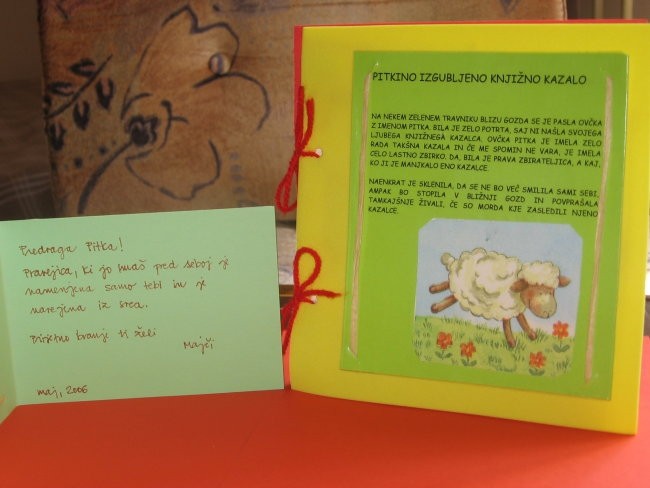 Predraga Pitka!
Pravljica, ki jo imaš pred seboj je
namenjena samo tebi in je
narejena iz srca.
Prijetno branje ti želi
Majči
maj, 2006
PITKINO IZGUBLJENO KNJIŽNO KAZALO
NA NEKEM ZELENEM TRAVNIKU BLIZU GOZDA SE JE PASLA OVČKA
Z IMENOM PITKA. BILA JE ZELO POTRTA, SAJ NI NAŠLA SVOJEGA
LJUBEGA KNJIŽNEGA KAZALCA. OVČKA PITKA JE IMELA ZELO
RADA TAKŠNA KAZALA IN ČE ME SPOMIN NE VARA, JE IMELA
CELO LASTNO ZBIRKO. DA, BILA JE PRAVA ZBIRATELJICA, A KAJ,
KO JI JE MANJKALO ENO KAZALCE.
NAENKRAT JE SKLENILA, DA SE NE BO VEČ SMILILA SAMI SEBI,
AMPAK BO STOPILA V BLIŽNJI GOZD IN POVPRAŠALA
TAMKAJŠNJE ŽIVALI, ČE SO MORDA KJE ZASLEDILI NJENO
KAZALCE.